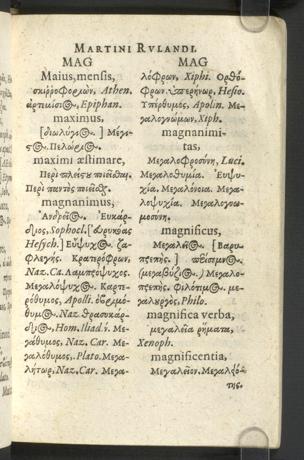 MARTINI RVLANDI.
MAG
Maius, mensis,
σκιρροφοριών, Athen.
ἀρτιμίσιος, Epiphan.
maximus,
[διωλύγιος.] Μέγι-
ςος. Πελώριος.
maximi æstimare,
Περὶ πλείςου ποιεῖσθαι.
Περὶ παντὸς ποιεῖσθ.
magnanimus,
Ἀνδρεῖος. Εὐκάρ-
διος, Sophocl.
Hesych.] Εὔψυχος. ζα-
φλεγής. Κρατερόφρων,
Naz. Ca. Λαμπρόψυχος.
Μεγαλόψυχος. Καρτε-
ρόθυμος, Apolli. ὀβριμό-
θυμος. Naz. θρασυκάρ-
διος, Hom. Iliad. γ. Με-
γάθυμος, Naz. Car. Με-
γαλόθυμος, Plato. Μεγα-
λήτωρ, Naz. Car. Μεγα-
MAG
λόφρων, Xiphi. Ὀρθό-
φρων. ὑπερήνωρ, Hesio.
ὑπέρθυμος, Apolin. Με-
γαλογνώμων, Xiph.
magnanimi-
tas,
Μεγαλοφροσύνη, Luci.
Μεγαλοθυμία. Εὐψυ-
χία. Μεγαλόνοια. Μεγα-
λοψυχία. Μεγαλογνω-
μοσύνη.
magnificus,
Μεγαλεῖος. [Βαρυ-
πρεπής.]
Μεγαλο-
πρεπής. Φιλότιμος. με-
γαλεργὸς, Philo.
magnifica verba,
μεγαλεῖα ῥήματα,
Xenoph.
magnificentia,
Μεγαλεῖον. Μεγαλειό-
της.